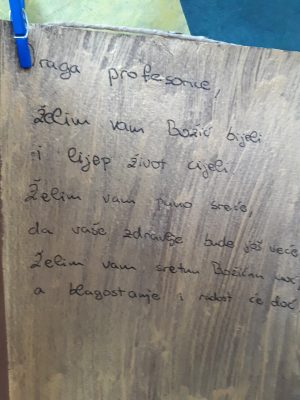 Draga profesorice,
Želim vam Božić bijeli
i lijep život cijeli
Želim vam puno sreće,
da vaše zdravlje bude još veće
Želim vam sretnu Božićnu noć,
a blagostanje i radost će doć